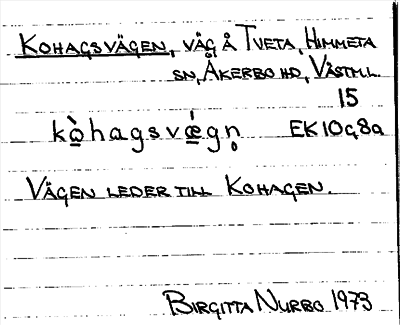 KOHAGSVÄGEN, VÄG Å TVETA, HIMMETA
SN, ÅKERBO HD, VÄSTML.
15
kò̱hagsvǽ̱gn̥ EK 10G8a
VÄGEN LEDER TILL KOHAGEN.
BIRGITTA NURBO 1973